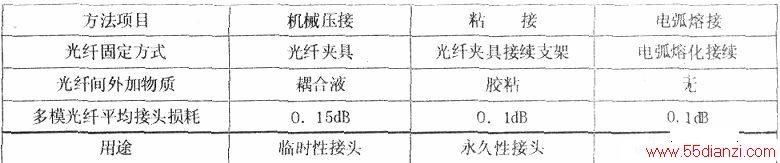 方法项目 机械压接 粘 接 电弧熔接
光纤固定方式 光纤夹具 光纤夹具接续支架 电弧熔化接续
光纤间外加物质 耦合液 胶粘 无
多模光纤平均接头损耗 0.15dB 0.1dB 0.1dB
用途 临时性接头 永久性接头
www.55dianzi.com